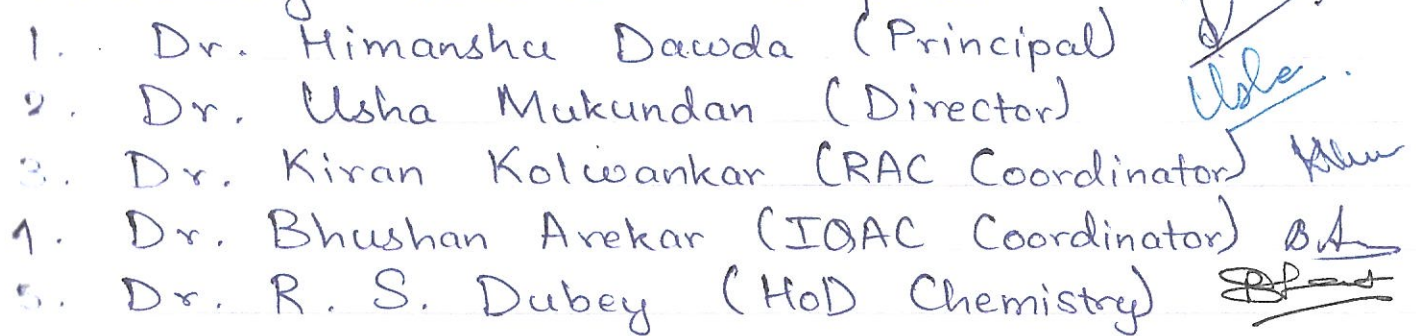 1. Dr. Himanshu Dawda (Principal)
2. Dr. Usha Mukundan (Director) Usha
3. Dr. Kiran Kolwankar (RAC Coordinator)
4. Dr. Bhushan Arekar (IQAC Coordinator) B.A
5. Dr. R. S. Dubey (HoD Chemistry)